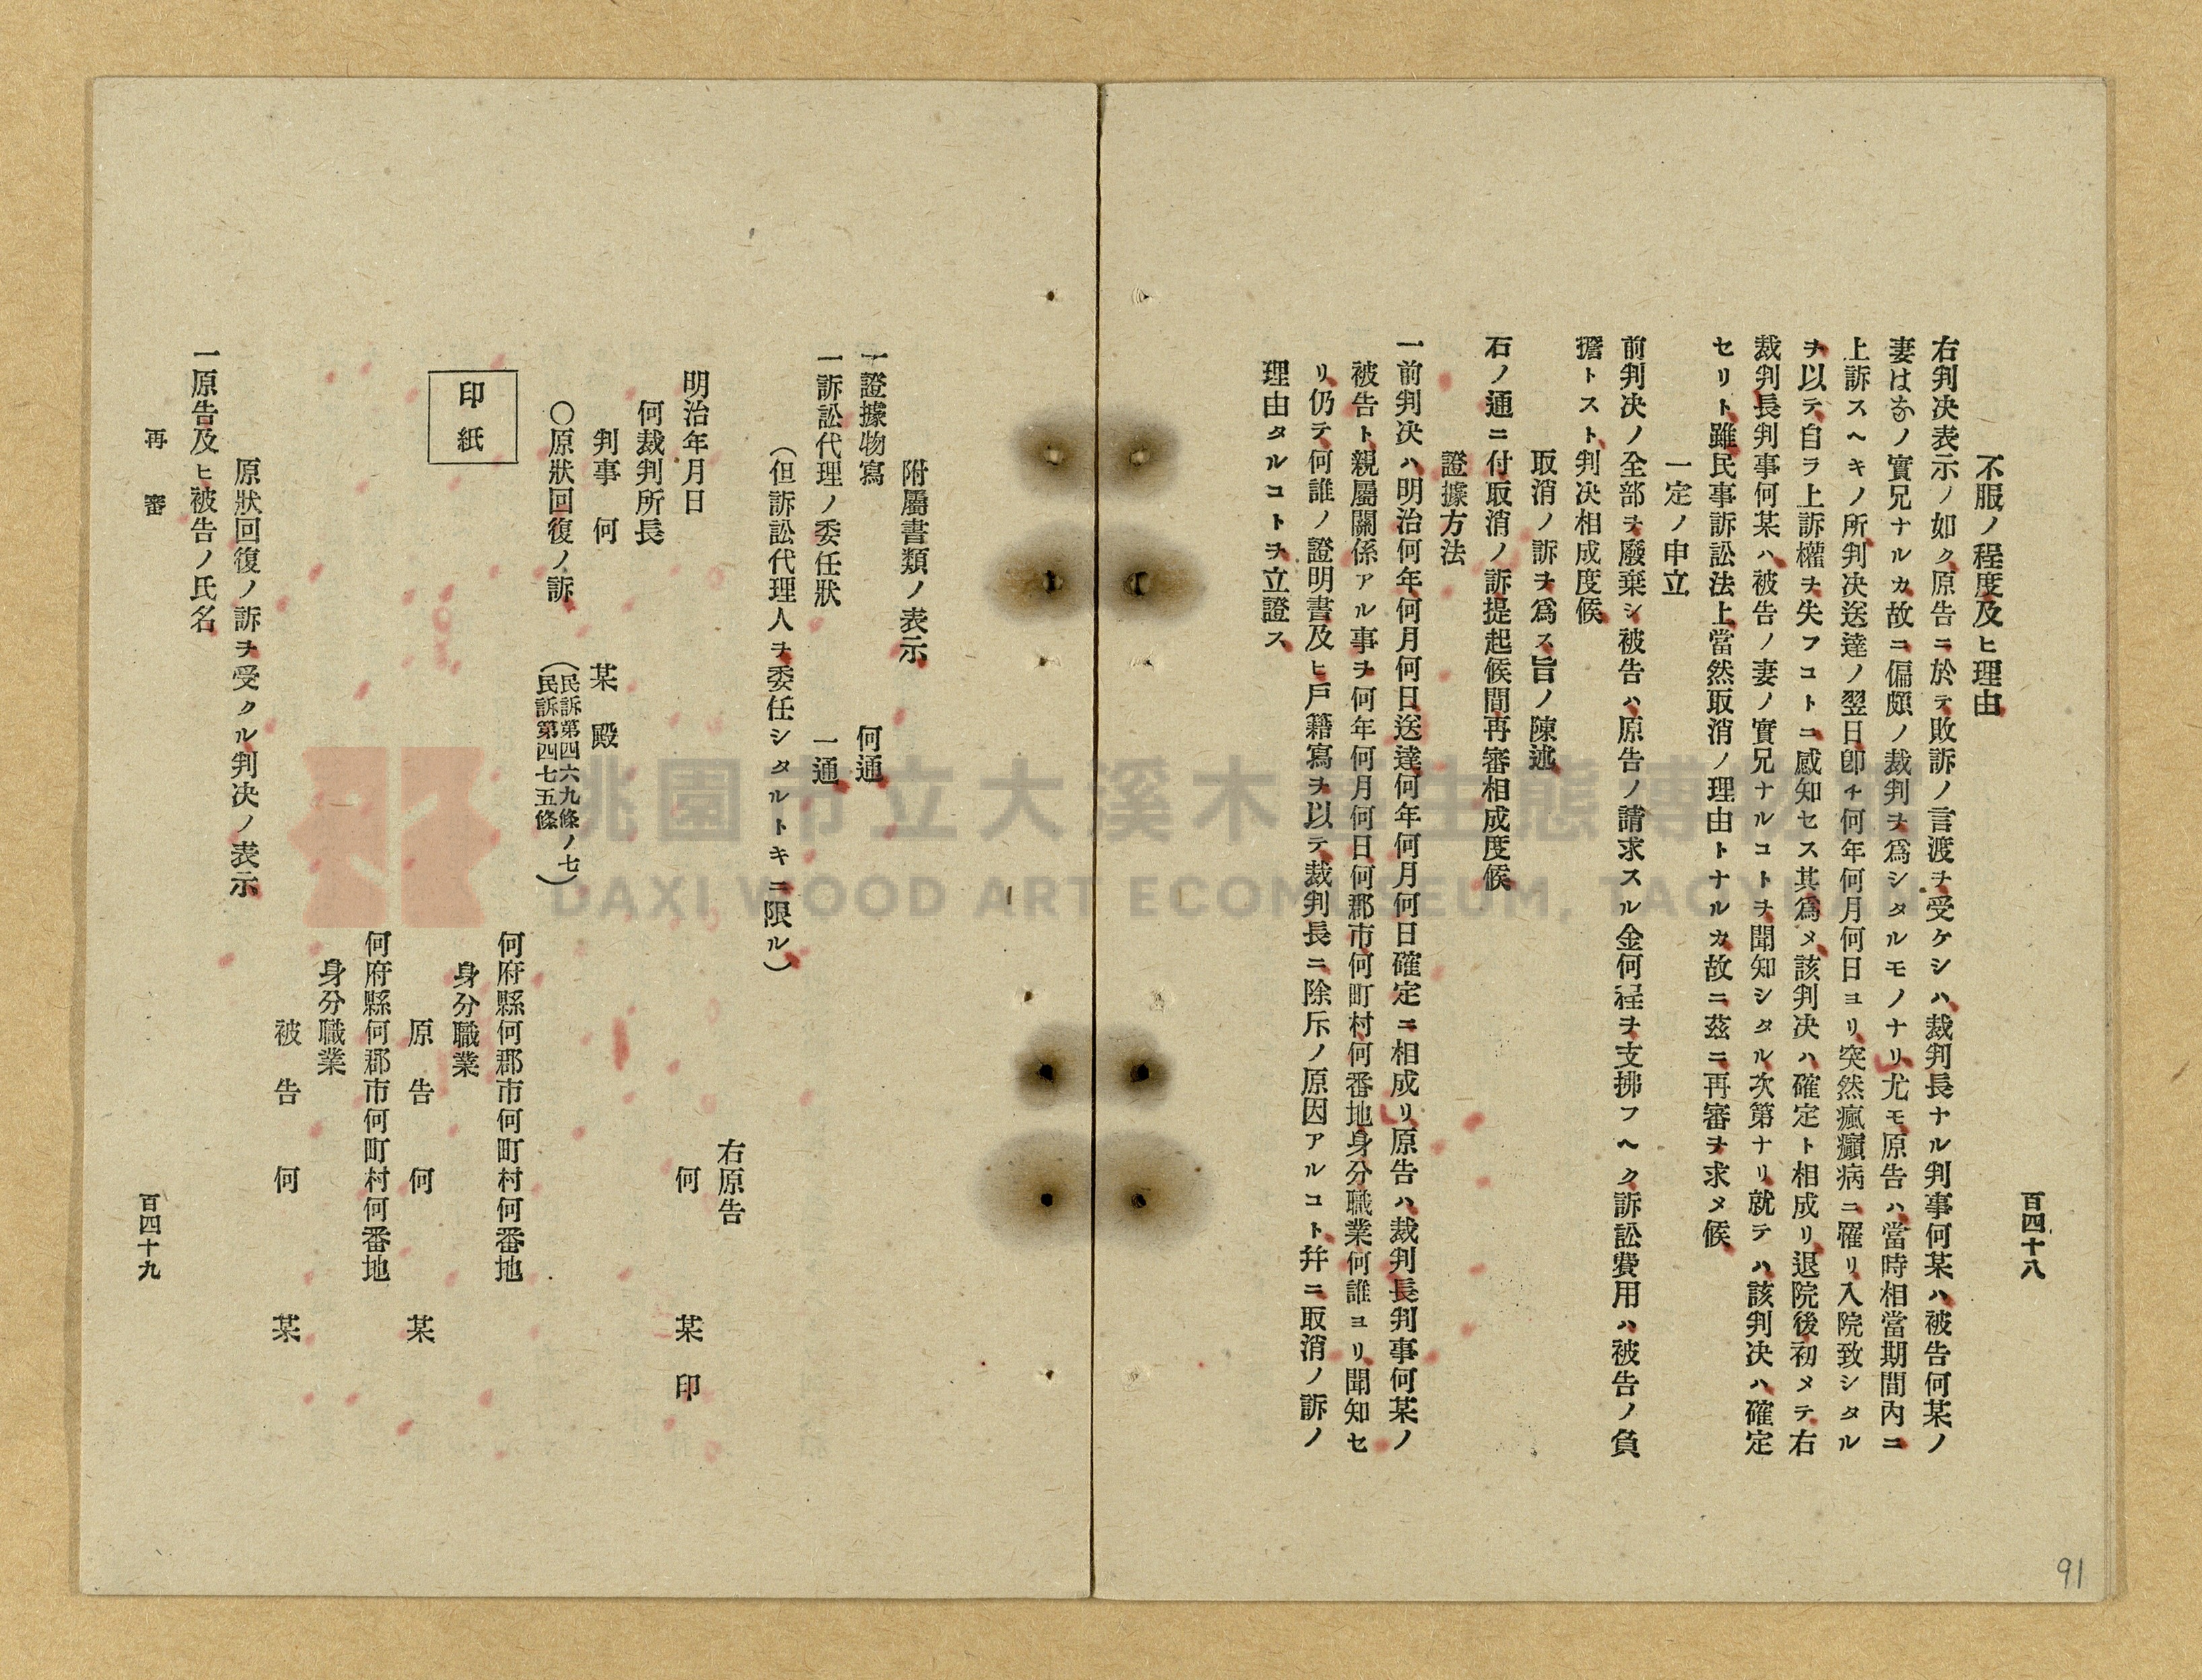 百四十八
不服ノ程度及ヒ理由
右判決表示ノ如ク原告ニ於テ敗訴ノ言渡ヲ受ケシハ裁判長ナル判事何某ハ被告何某ノ
妻はなノ實兄ナルカ故ニ偏頗ノ裁判ヲ爲シタルモノナリ尤モ原告ハ當時相當期間內ニ
上訴スヘキノ所判決送達ノ翌日卽チ何年何月何日ヨリ突然瘋癲病ニ罹リ入院致シタル
ヲ以テ自ラ上訴權ヲ失フコトニ感知セス其爲メ該判決ハ確定ト相成リ退院後初メテ右
裁判長判事何某ハ被告ノ妻ノ實兄ナルコトヲ聞知シタル次第ナリ就テハ該判決ハ確定
セリト雖民事訴訟法上當然取消ノ理由トナルカ故ニ茲ニ再審ヲ求メ候
一定ノ申立
前判決ノ全部ヲ廢棄シ被告ハ原告ノ請求スル金何程ヲ支拂フヘク訴訟費用ハ被告ノ負
擔トスト判決相成度候
取消ノ訴ヲ爲ス旨ノ陳述
右ノ通ニ付取消ノ訴提起候間再審相成度候
證據方法
一前判決ハ明治何年何月何日送達何年何月何日確定ニ相成リ原告ハ裁判長判事何某ノ
被告ト親屬關係アル事ヲ何年何月何日何郡市何町村何番地身分職業何誰ヨリ聞知セ
リ仍テ何誰ノ證明書及ヒ戶籍寫ヲ以テ裁判長ニ除斥ノ原因アルコト幷ニ取消ノ訴ノ
理由タルコトヲ立證ス
附屬書類ノ表示
一證據物寫 何通
一訴訟代理ノ委任狀 一通
(但訴訟代理人ヲ委任シタルトキニ限ル)
右原告
明治年月日 何 某 印
何裁判所長
判事 何 某 殿
○原狀回復ノ訴 (民訴第四六九條ノ七
民訴第四七五條)
何府縣何郡市何町村何番地
印紙
身分職業
原 告 何 某
何府縣何郡市何町村何番地
身分職業
被 告 何 某
原狀回復ノ訴ヲ受クル判決ノ表示
一原告及ヒ被告ノ氏名
再 審 百四十九
91
桃園市立大溪木藝生態博物館
DAXI WOOD ART ECOMUSEUM, TAOYUAN